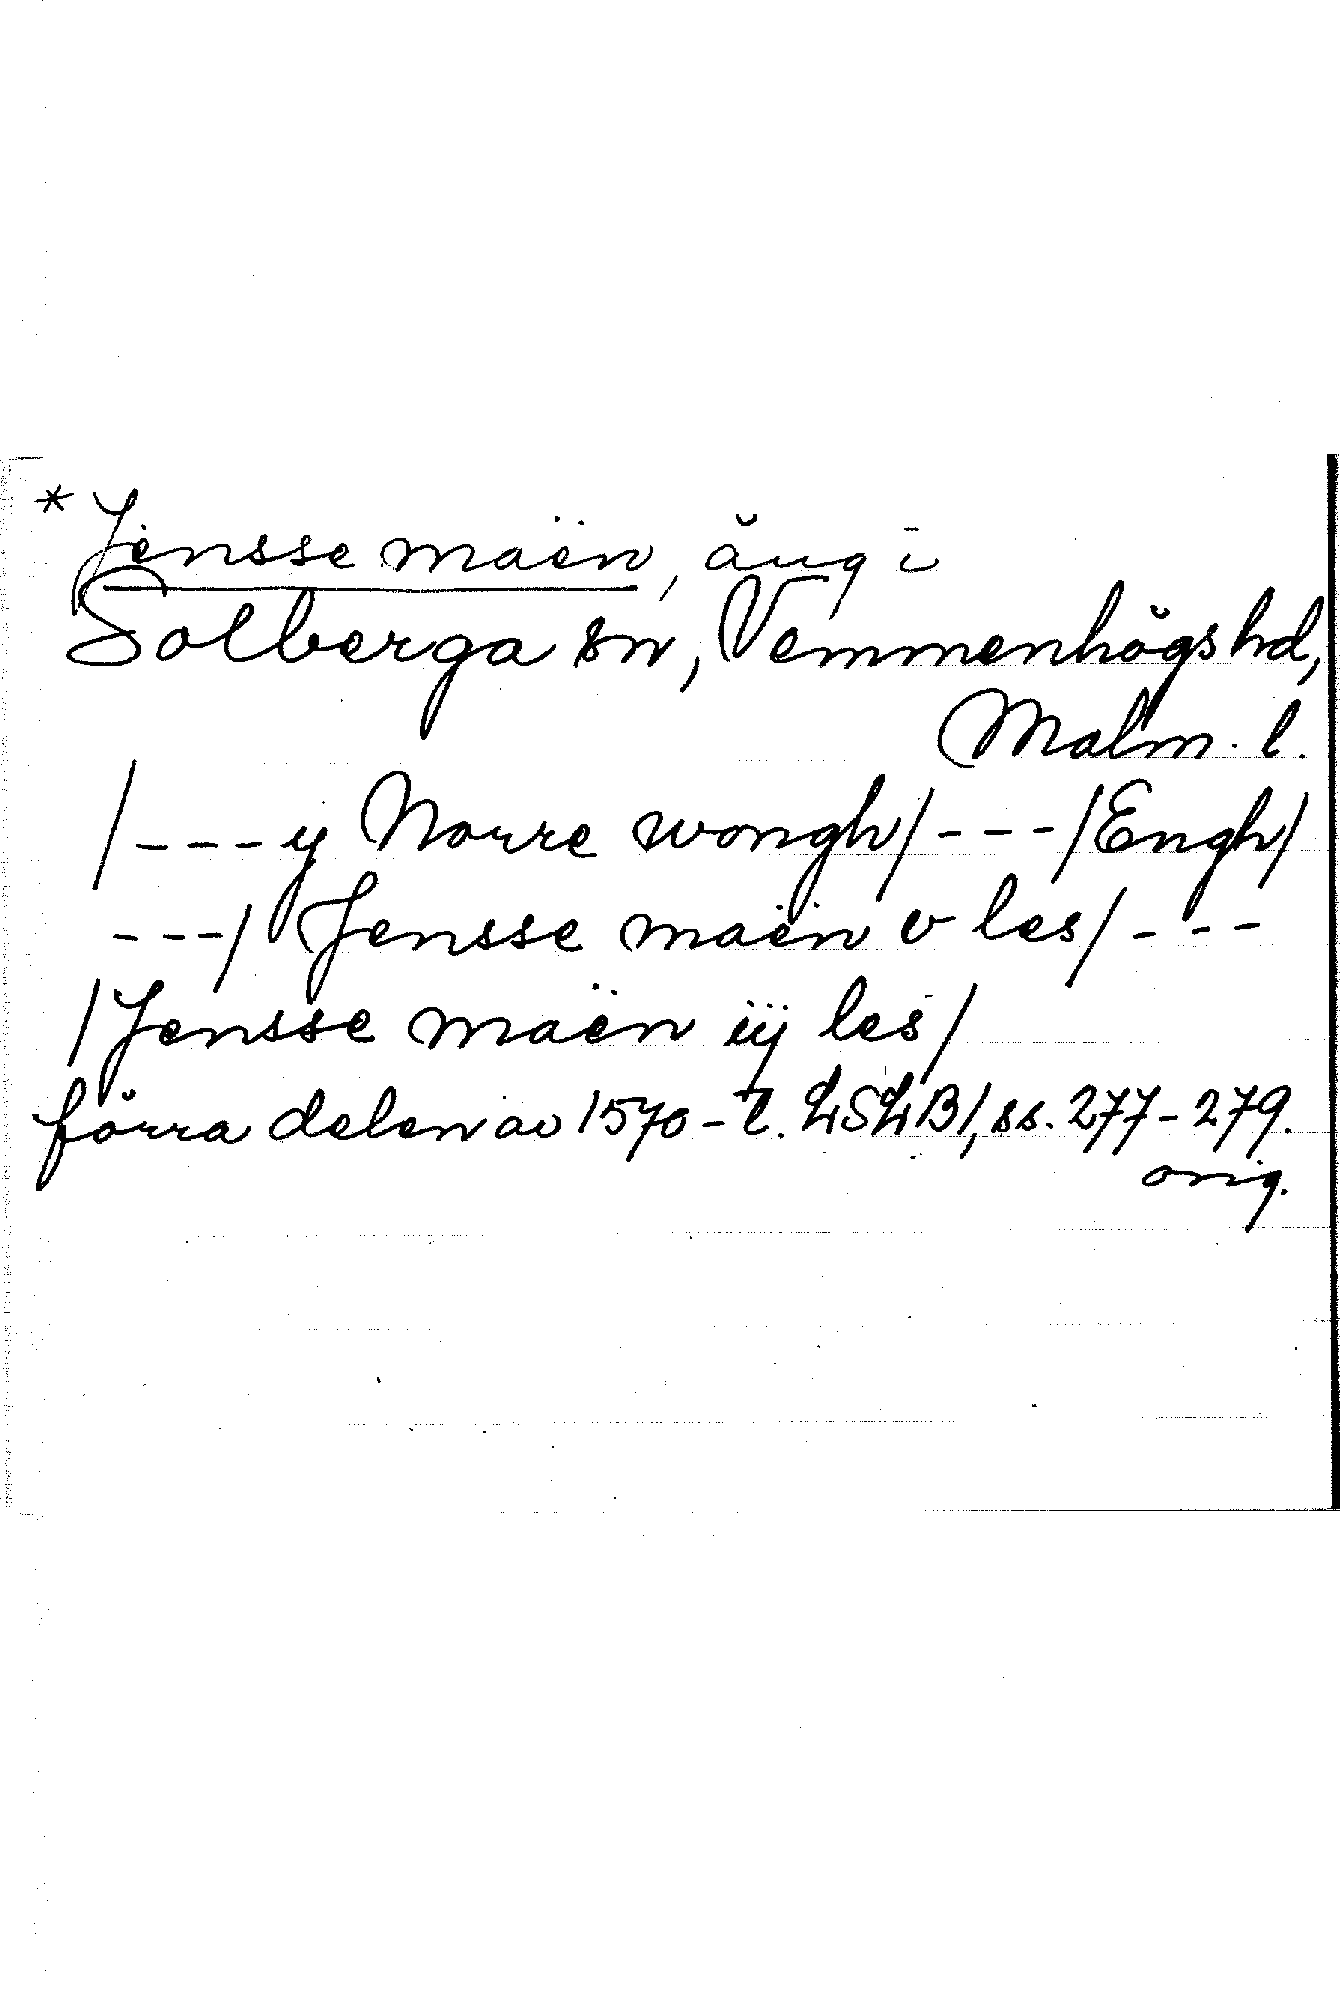 *Jensse maën, äng i
Solberga sn, Vemmenhögs hd,
Malm. l.
/---y Norre wongh/---/Engh/
---/ Jensse maën v les/---
/Jensse maën iij les/
förra delen av 1570-t. LSLB1, ss. 277-279.
orig.